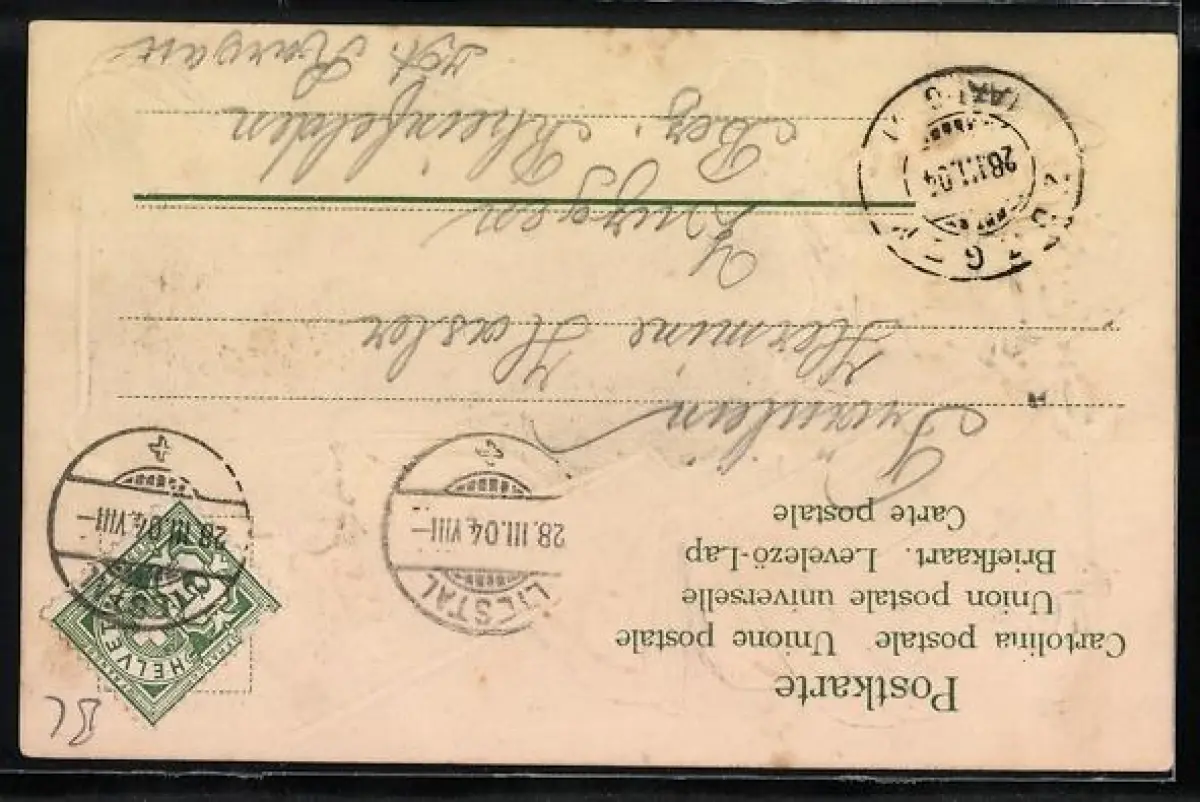 Postkarte
Cartolina postale Unione postale
Union postale universelle
Briefkaart. Levelező-Lap
Carte postale
Fräulein
Hermine Hasler
Zuzgen
Bez. Rheinfelden
Kt. Aargau
HELVETIA
LIESTAL
28.III.04.VIII-
LIESTAL
28.III.04.VIII-
ZUZGEN
28.III.04
BL